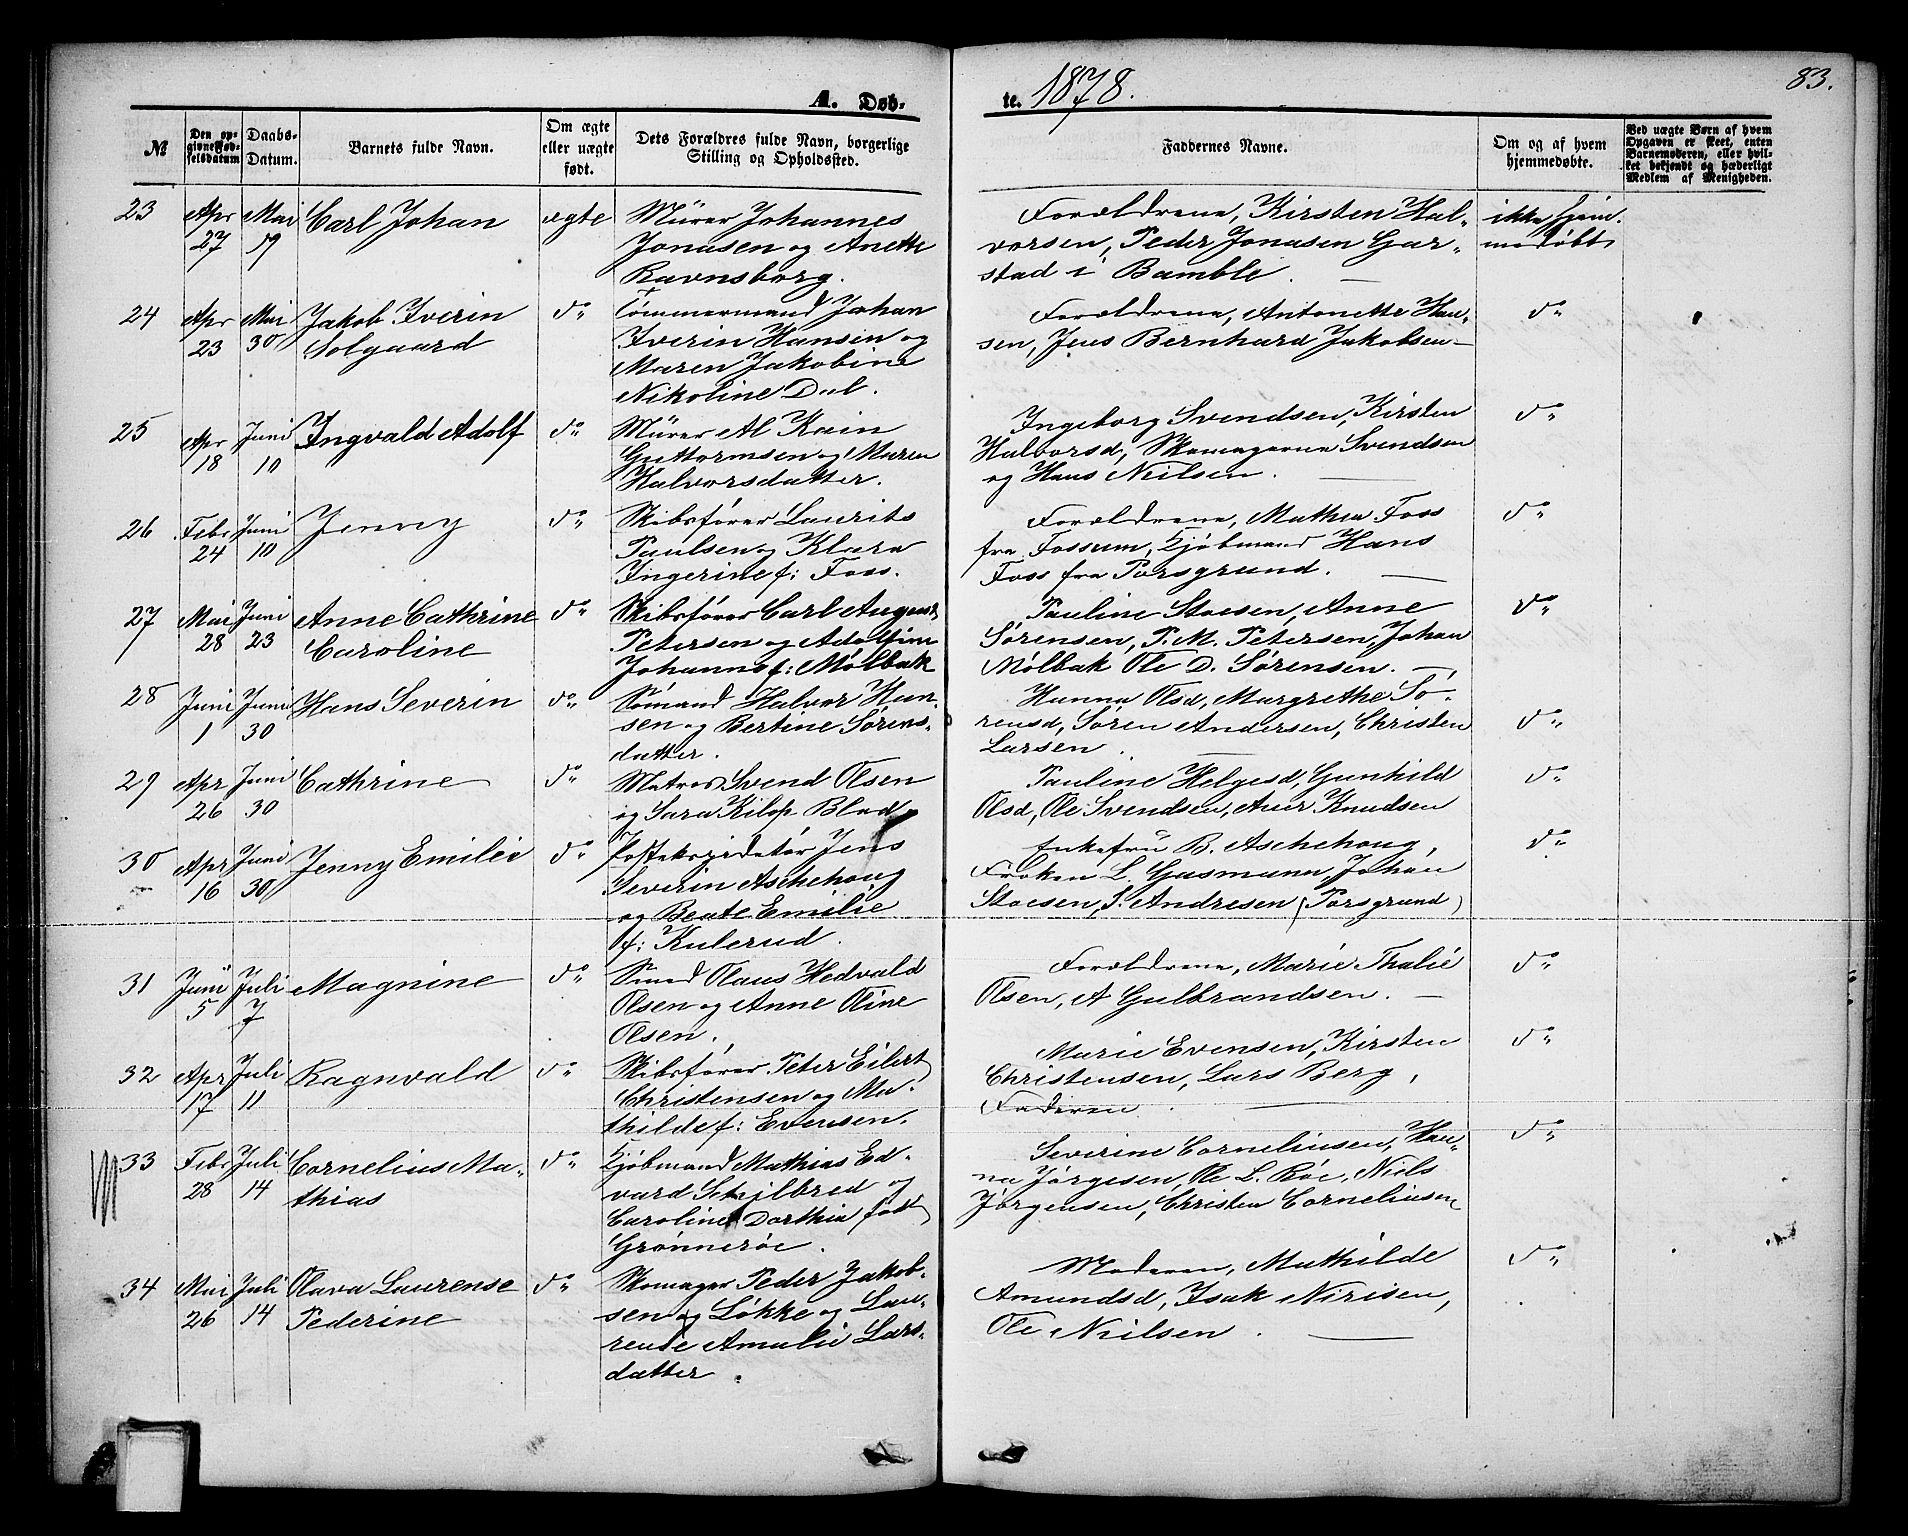 A. Døb-
te. 1878.
83.
№
Den op-
givne Fød-
selsdatum
Daabs-
Datum.
Barnets fulde Navn.
Om ægte
eller uægte
født.
Dets Forældres fulde Navn, borgerlige
Stilling og Opholdssted.
Faddernes Navne.
Om og af hvem
hjemmedøbte.
Ved uægte Børn af hvem
Opgaven er skeet, enten
Barnemoderen, eller hvil-
ket bekjendt og hæderligt
Medlem af Menigheden.
23
Apr
27
Mai
19
Carl Johan
ægte
Mürer Johannes
Jonasen og Anette
Ravnsborg.
Forældrene, Kirsten Hal-
vorsen, Peder Jonasen Gar-
stad i Bamble.
ikke hjem-
medøbt
24
Apr
23
Mai
30
Jakob Iverin
Solgaard
do
Tømmermand Johan
Iverin Hansen og
Maren Jakobine
Nikoline Dal.
Forældrene, Antonette Han-
sen, Jens Bernhard Jakobsen
do
25
Apr
18
Juni
10
Ingvald Adolf
do
Mürer Al Kain
Guttormsen og Maren
Halvorsdatter.
Ingeborg Svendsen, Kirsten
Halvorsd, Skomagerne Svendsen
og Hans Nielsen.
do
26
Febr
24
Juni
10
Jenny
do
Skibsfører Laurits
Paulsen og Klara
Ingerine f: Foss.
Forældrene, Mathea Foss
fra Fossum, Kjøbmand Hans
Foss fra Porsgrund.
do
27
Mai
28
Juni
23
Anne Cathrine
Caroline
do
Skibsfører Carl August
Petersen og Adolfine
Johanne f: Mølbak
Pauline Stoesen, Anne
Sørensen, P. M. Petersen, Johan
Mølbak Ole D. Sørensen.
do
28
Juni
1
Juni
30
Hans Severin
do
Sømand Halvor Han-
sen og Bertine Sørens-
datter.
Hanna Olsd, Margrethe Sø-
rensd, Søren Andersen, Christen
Larsen.
do
29
Apr
26
Juni
30
Cathrine
do
Matros Svend Olsen
og Sara Kilop Blad
Pauline Helgesd, Gunhild
Olsd, Ole Svendsen, Aner Knudsen
do
30
Apr
16
Juni
30
Jenny Emilie
do
Postekspeditør Jens
Severin Aschehoug
og Beate Emilie
f: Kulerud.
Enkefru B. Aschehoug,
Frøken L. Gasmann, Johan
Stoesen, S. Andresen (Porsgrund)
do
31
Juni
5
Juli
7
Magnine
do
Smed Olaus Hedvald
Olsen og Anne Oline
Olsen.
Forældrene, Marie Thalie
Olsen, A Gulbrandsen.
do
32
Apr
17
Juli
11
Ragnvald
do
Skibsfører Peter Eilert
Christensen og Ma-
thilde f: Evensen.
Marie Evensen, Kirsten
Christensen, Lars Berg,
Faderen.
do
33
Febr
28
Juli
14
Cornelius Ma-
thias
do
Kjøbmand Mathias Ed-
vard Schilbred og
Caroline Dorthia født
Grønnerøe.
Severine Corneliusen, Han-
na Jørgesen, Ole L. Røe, Niels
Jørgensen, Christen Corneliusen
do
34
Mai
26
Juli
14
Olava Laurense
Pederine
do
Skomager Peder Jakob-
sen og Løkke og Lau-
rense Amalie Lars-
datter.
Moderen, Mathilde
Amundsd, Isak Nirisen,
Ole Nielsen.
do